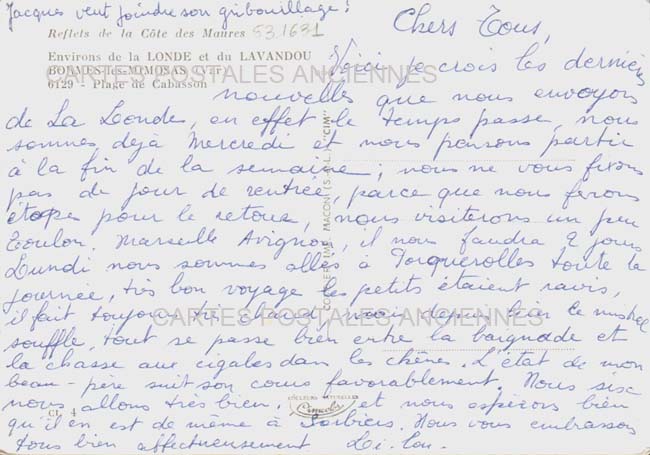 Jacques veut joindre son gribouillage!
Reflets de la Côte des Maures 53.1631
Environs de la LONDE et du LAVANDOU
BORMES-les-MIMOSAS (Var)
6129 - Plage de Cabasson
CARTES POSTALES ANCIENNES
Chers Tous,
Voici je crois les dernières
nouvelles que nous envoyons
de La Londe, en effet le temps passe, nous
sommes déjà Mercredi et nous pensons partir
à la fin de la semaine; nous ne vous fixons
pas de jour de rentrée, parce que nous ferons
étape pour le retour, nous visiterons un peu
Toulon. Marseille Avignon, il nous faudra 2 jours
Lundi nous sommes allés à Porquerolles toute la
journée, très bon voyage les petits étaient ravis,
il fait toujours très chaud, mais depuis hier le mistral
CARTES POSTALES ANCIENNES
souffle, tout se passe bien entre la baignade et
la chasse aux cigales dans les chênes. L'état de mon
beau-père suit son cours favorablement. Nous six
nous allons très bien, et nous espérons bien
qu'il en est de même à Nous vous embrassons
tous bien affectueusement
COULEURS NATURELLES
Cimcolor
MACON
"CIM"